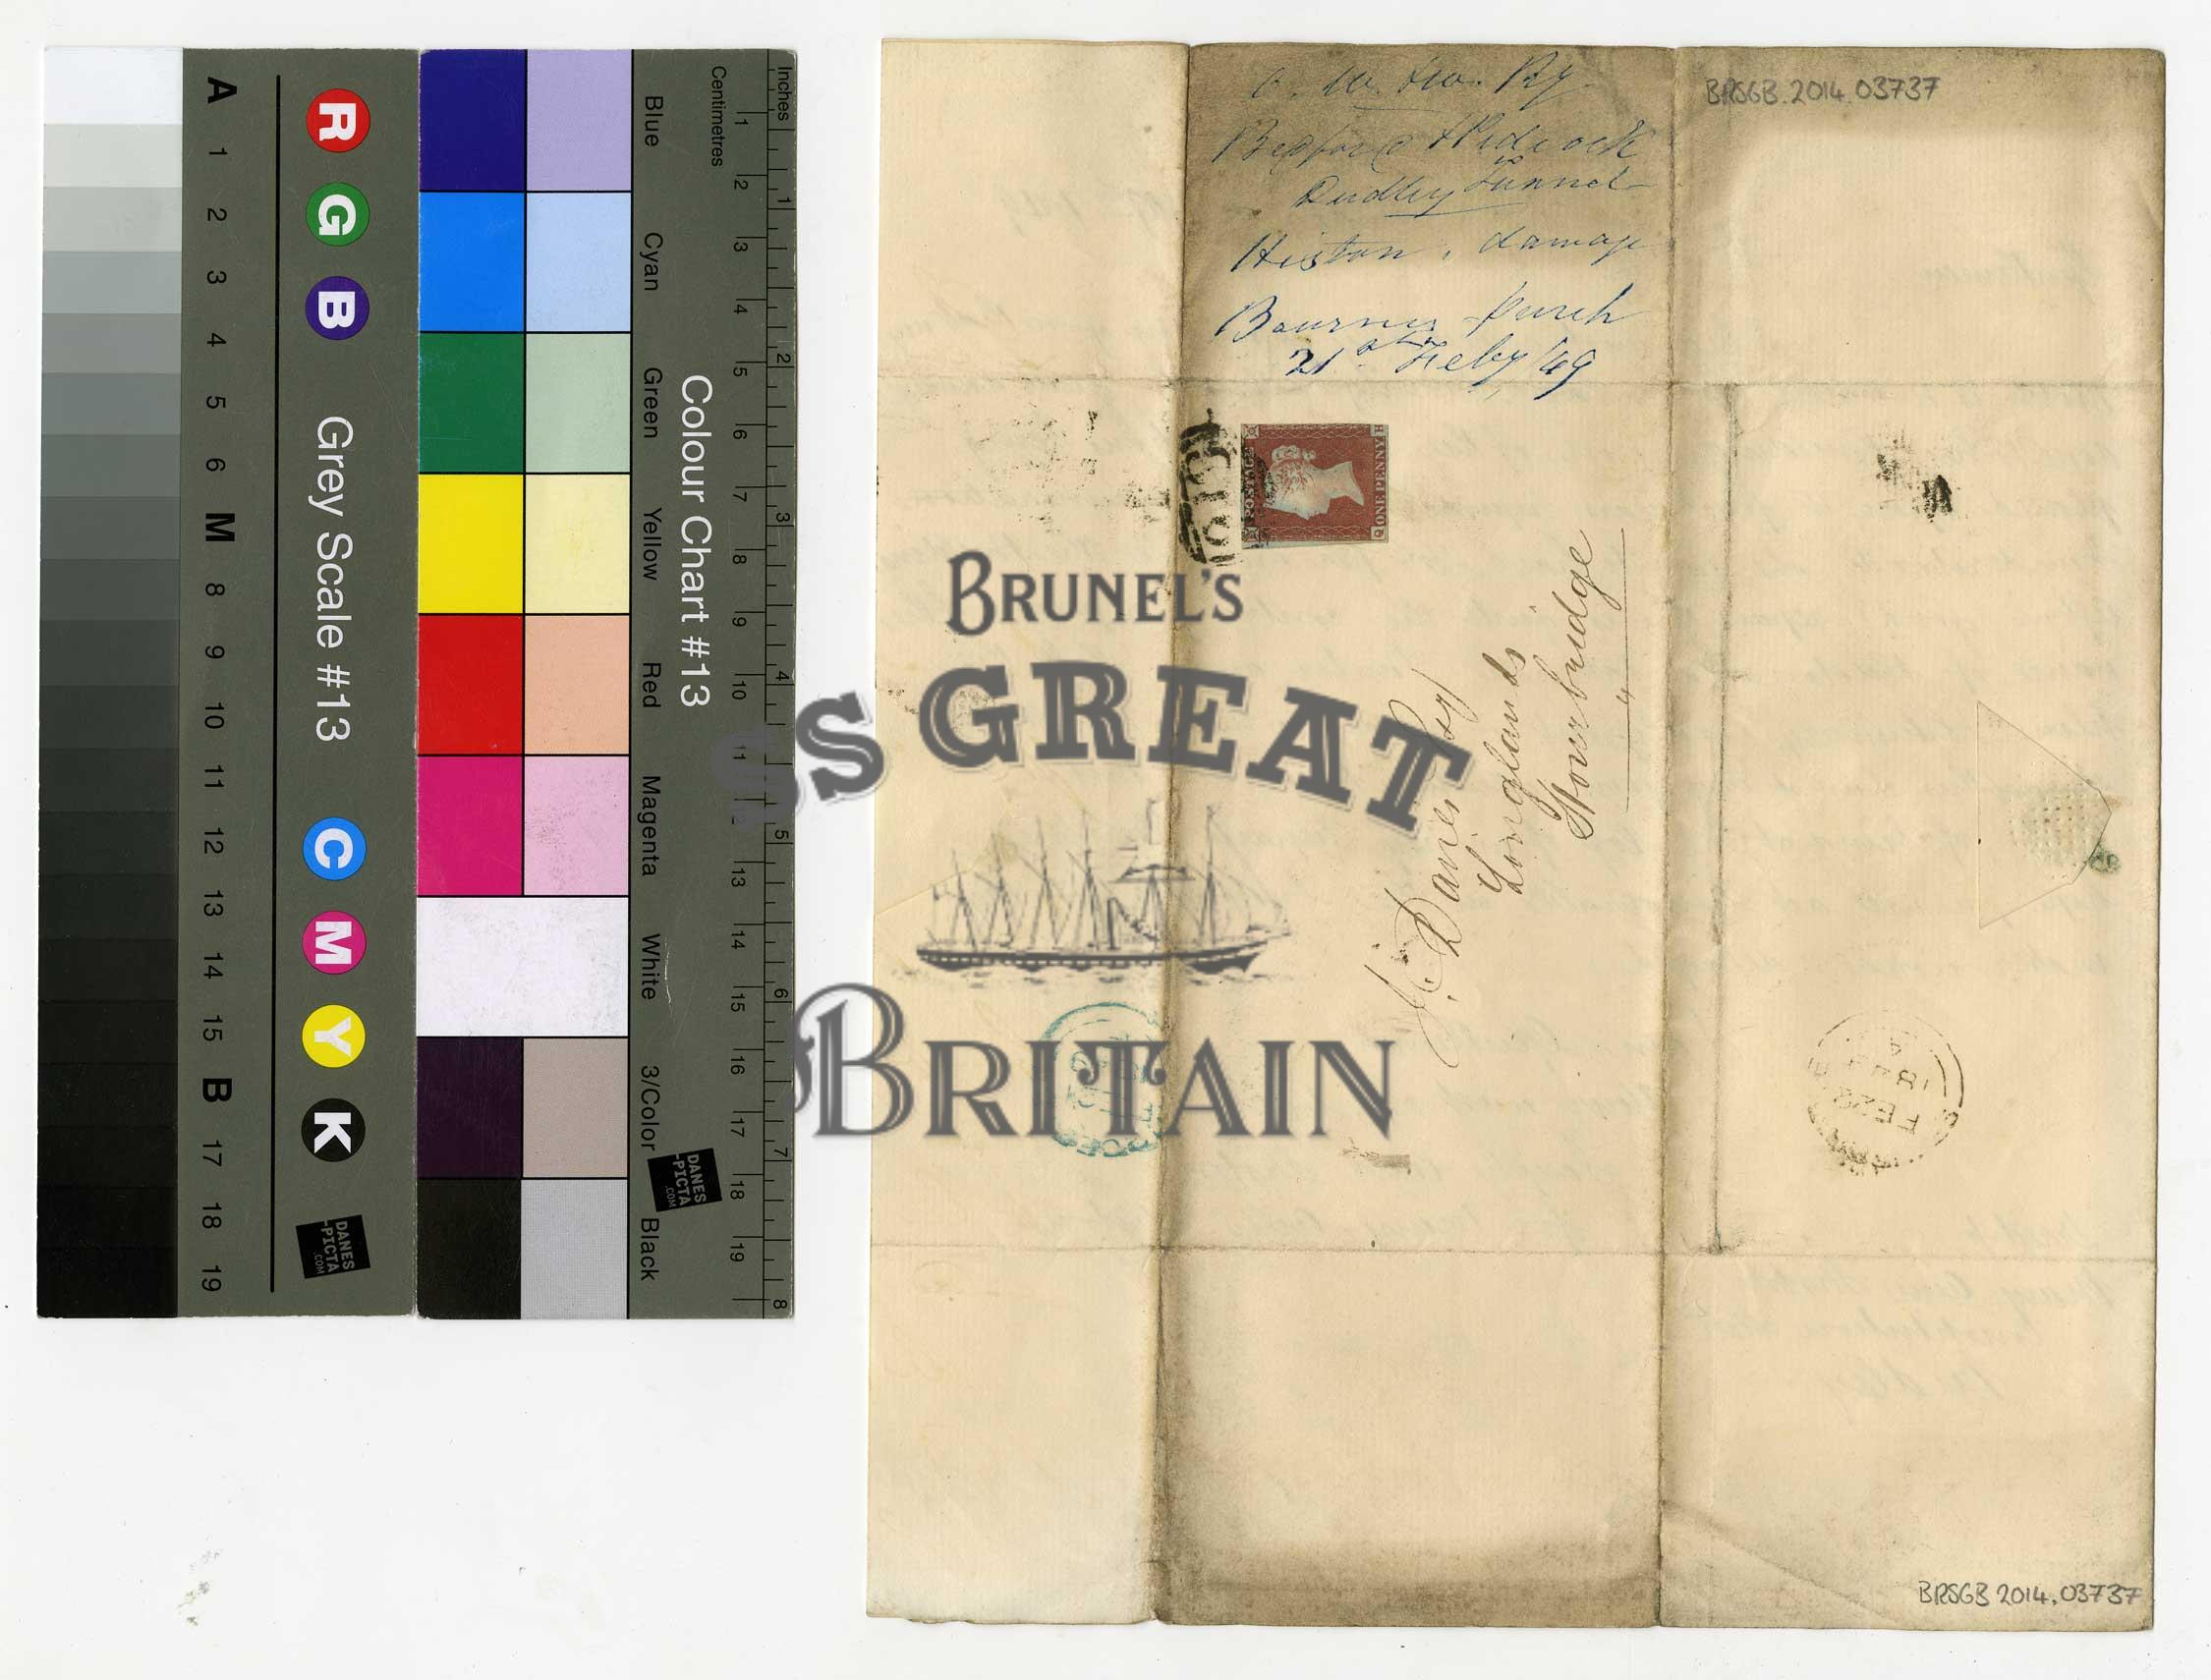 A 1 2 3 4 5 6 M 8 9 10 11 12 13 14 15 B 17 18 19
R G B
Grey Scale #13
C M Y K
DANES
-PICTA
.COM
Blue Cyan Green Yellow Red Magenta White 3/Color Black
Colour Chart #13
DANES
-PICTA
.COM
Centimetres 1 2 3 4 5 6 7 8 9 10 11 13 14 15 16 17 18 19
Inches 1 2 3 4 5 6 7 8
O. W. & W. Ry.
Bedford & Pidcock
Dudley Tunnel
damage
21st Feby /49
BRSGB. 2014. 03737
POSTAGE
ONE PENNY
Q H
Davies Esq
Longlands
Stourbridge
BRUNEL'S
SS GREAT
BRITAIN
BRSGB 2014. 03737